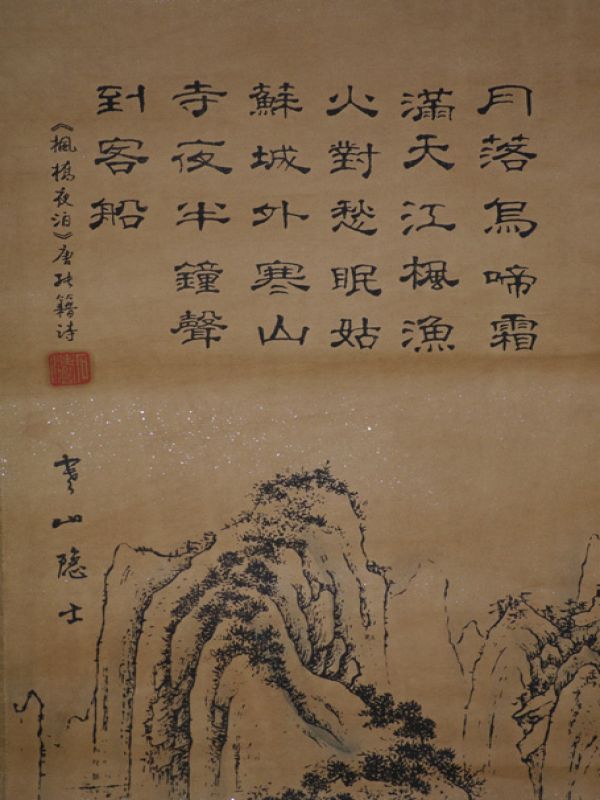 月落烏啼霜
滿天江楓漁
火對愁眠姑
蘇城外寒山
寺夜半鐘聲
到客船
《楓橋夜泊》唐張籍诗
寒山隐士